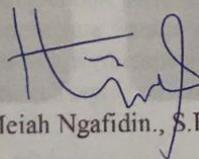 Meiah Ngafidin., S.